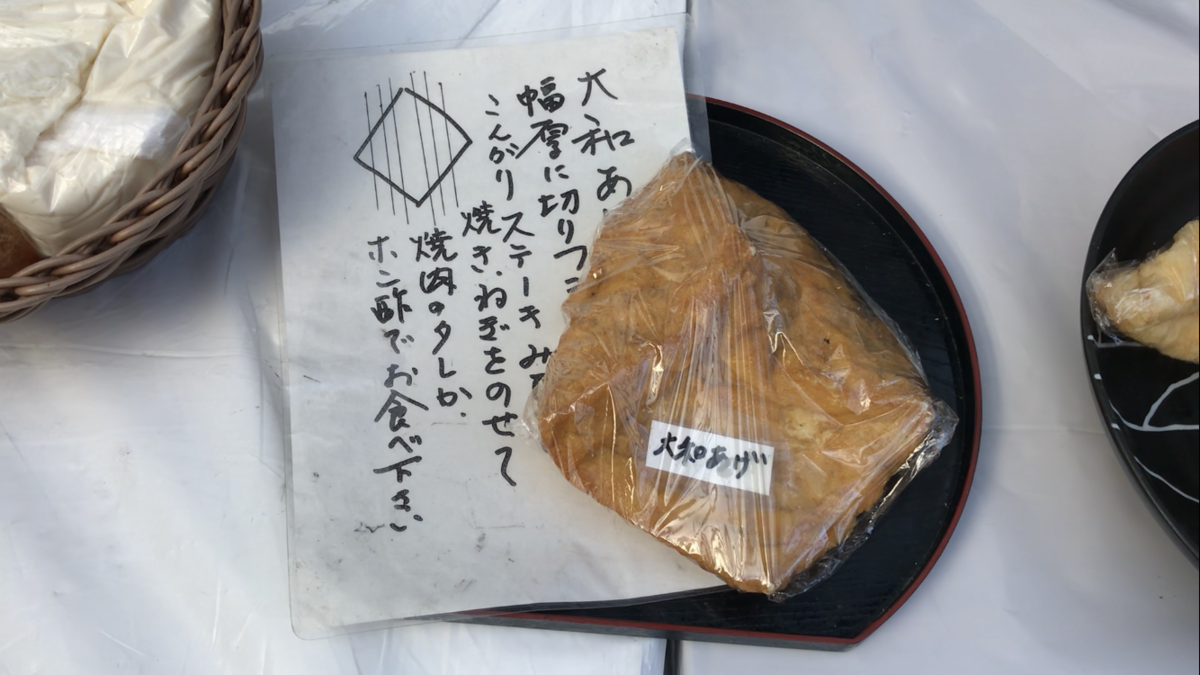 大和あ
幅厚に切りフ
こんがりステーキみ
焼き、ねぎをのせて
焼肉のタレか、
ホン酢でお食べ下さい
大和あげ